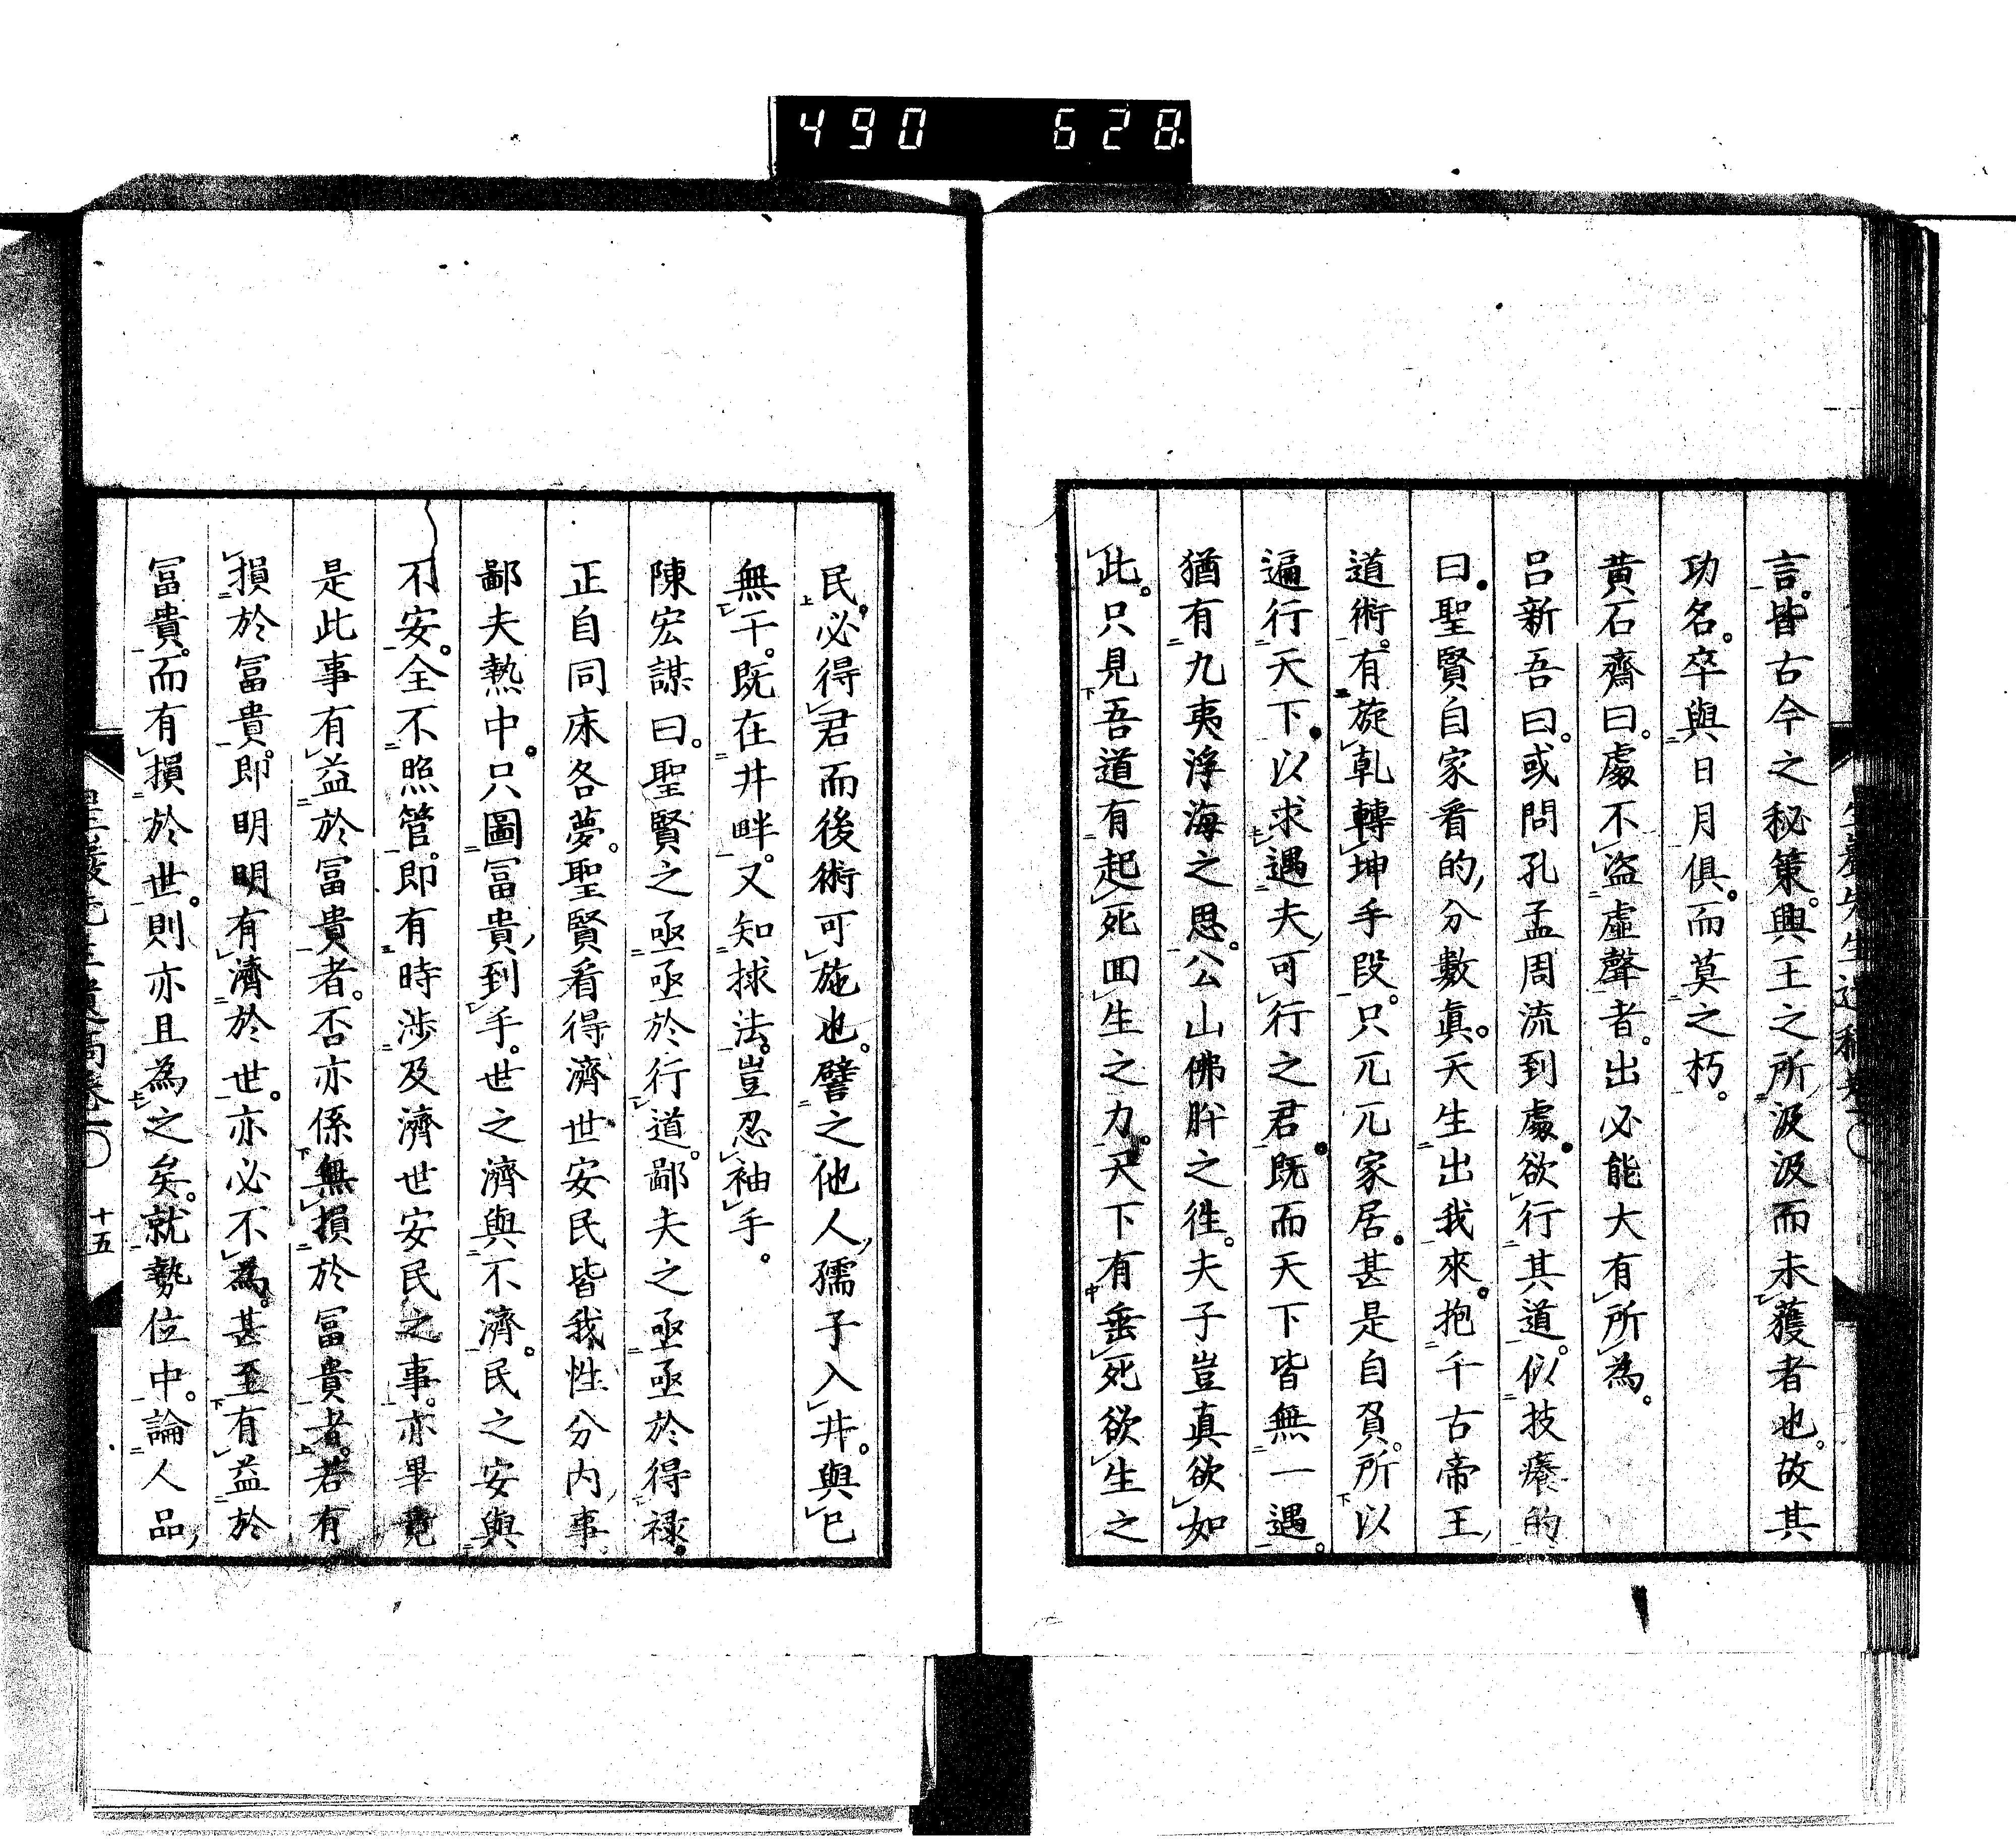 490 628
言。皆古今之秘策。興王之所汲汲而未獲者也。故其
功名。卒與日月俱。而莫之朽。
黄石齋曰。處不盗虚聲者。出必能大有所為。
呂新吾曰。或問孔孟周流到處。欲行其道。似技癢的
曰。聖賢自家看的，分數真。天生出我來。抱千古帝王，
道術。有旋乹轉坤手段。只兀兀家居。甚是自負。所以
遍行天下。以求遇夫，可行之君。既而天下皆無一遇。
猶有九夷浮海之思。公山佛肸之徃。夫子豈真欲如
此。只見吾道有起死回生之力。天下有垂死欲生之
民。必得君而後術可施也。譬之他人，孺子入井。與已
無干。既在井畔。又知捄法。豈忍袖手。
陳宏謀曰。聖賢之亟亟於行道。鄙夫之亟亟於得祿。
正自同床各夢。聖賢看得濟世安民皆我性分内事
鄙夫熱中。只圖冨貴，到手。世之濟與不濟。民之安與
不安。全不照管。即有時渉及濟世安民之事。亦畢竟
是此事有益於冨貴者。否亦係無損於冨貴者。若有
損於冨貴。即明明有濟於世。亦必不為。甚至有益於
冨貴。而有損於世。則亦且為之矣。就勢位中。論人品，
十五